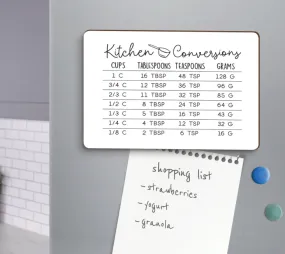 Kitchen Conversions
CUPS TABLESPOONS TEASPOONS GRAMS
1 C 16 TBSP 48 TSP 128 G
3/4 C 12 TBSP 36 TSP 96 G
2/3 C 11 TBSP 32 TSP 85 G
1/2 C 8 TBSP 24 TSP 64 G
1/3 C 5 TBSP 16 TSP 43 G
1/4 C 4 TBSP 12 TSP 32 G
1/8 C 2 TBSP 6 TSP 16 G
shopping list
- strawberries
- yogurt
- granola